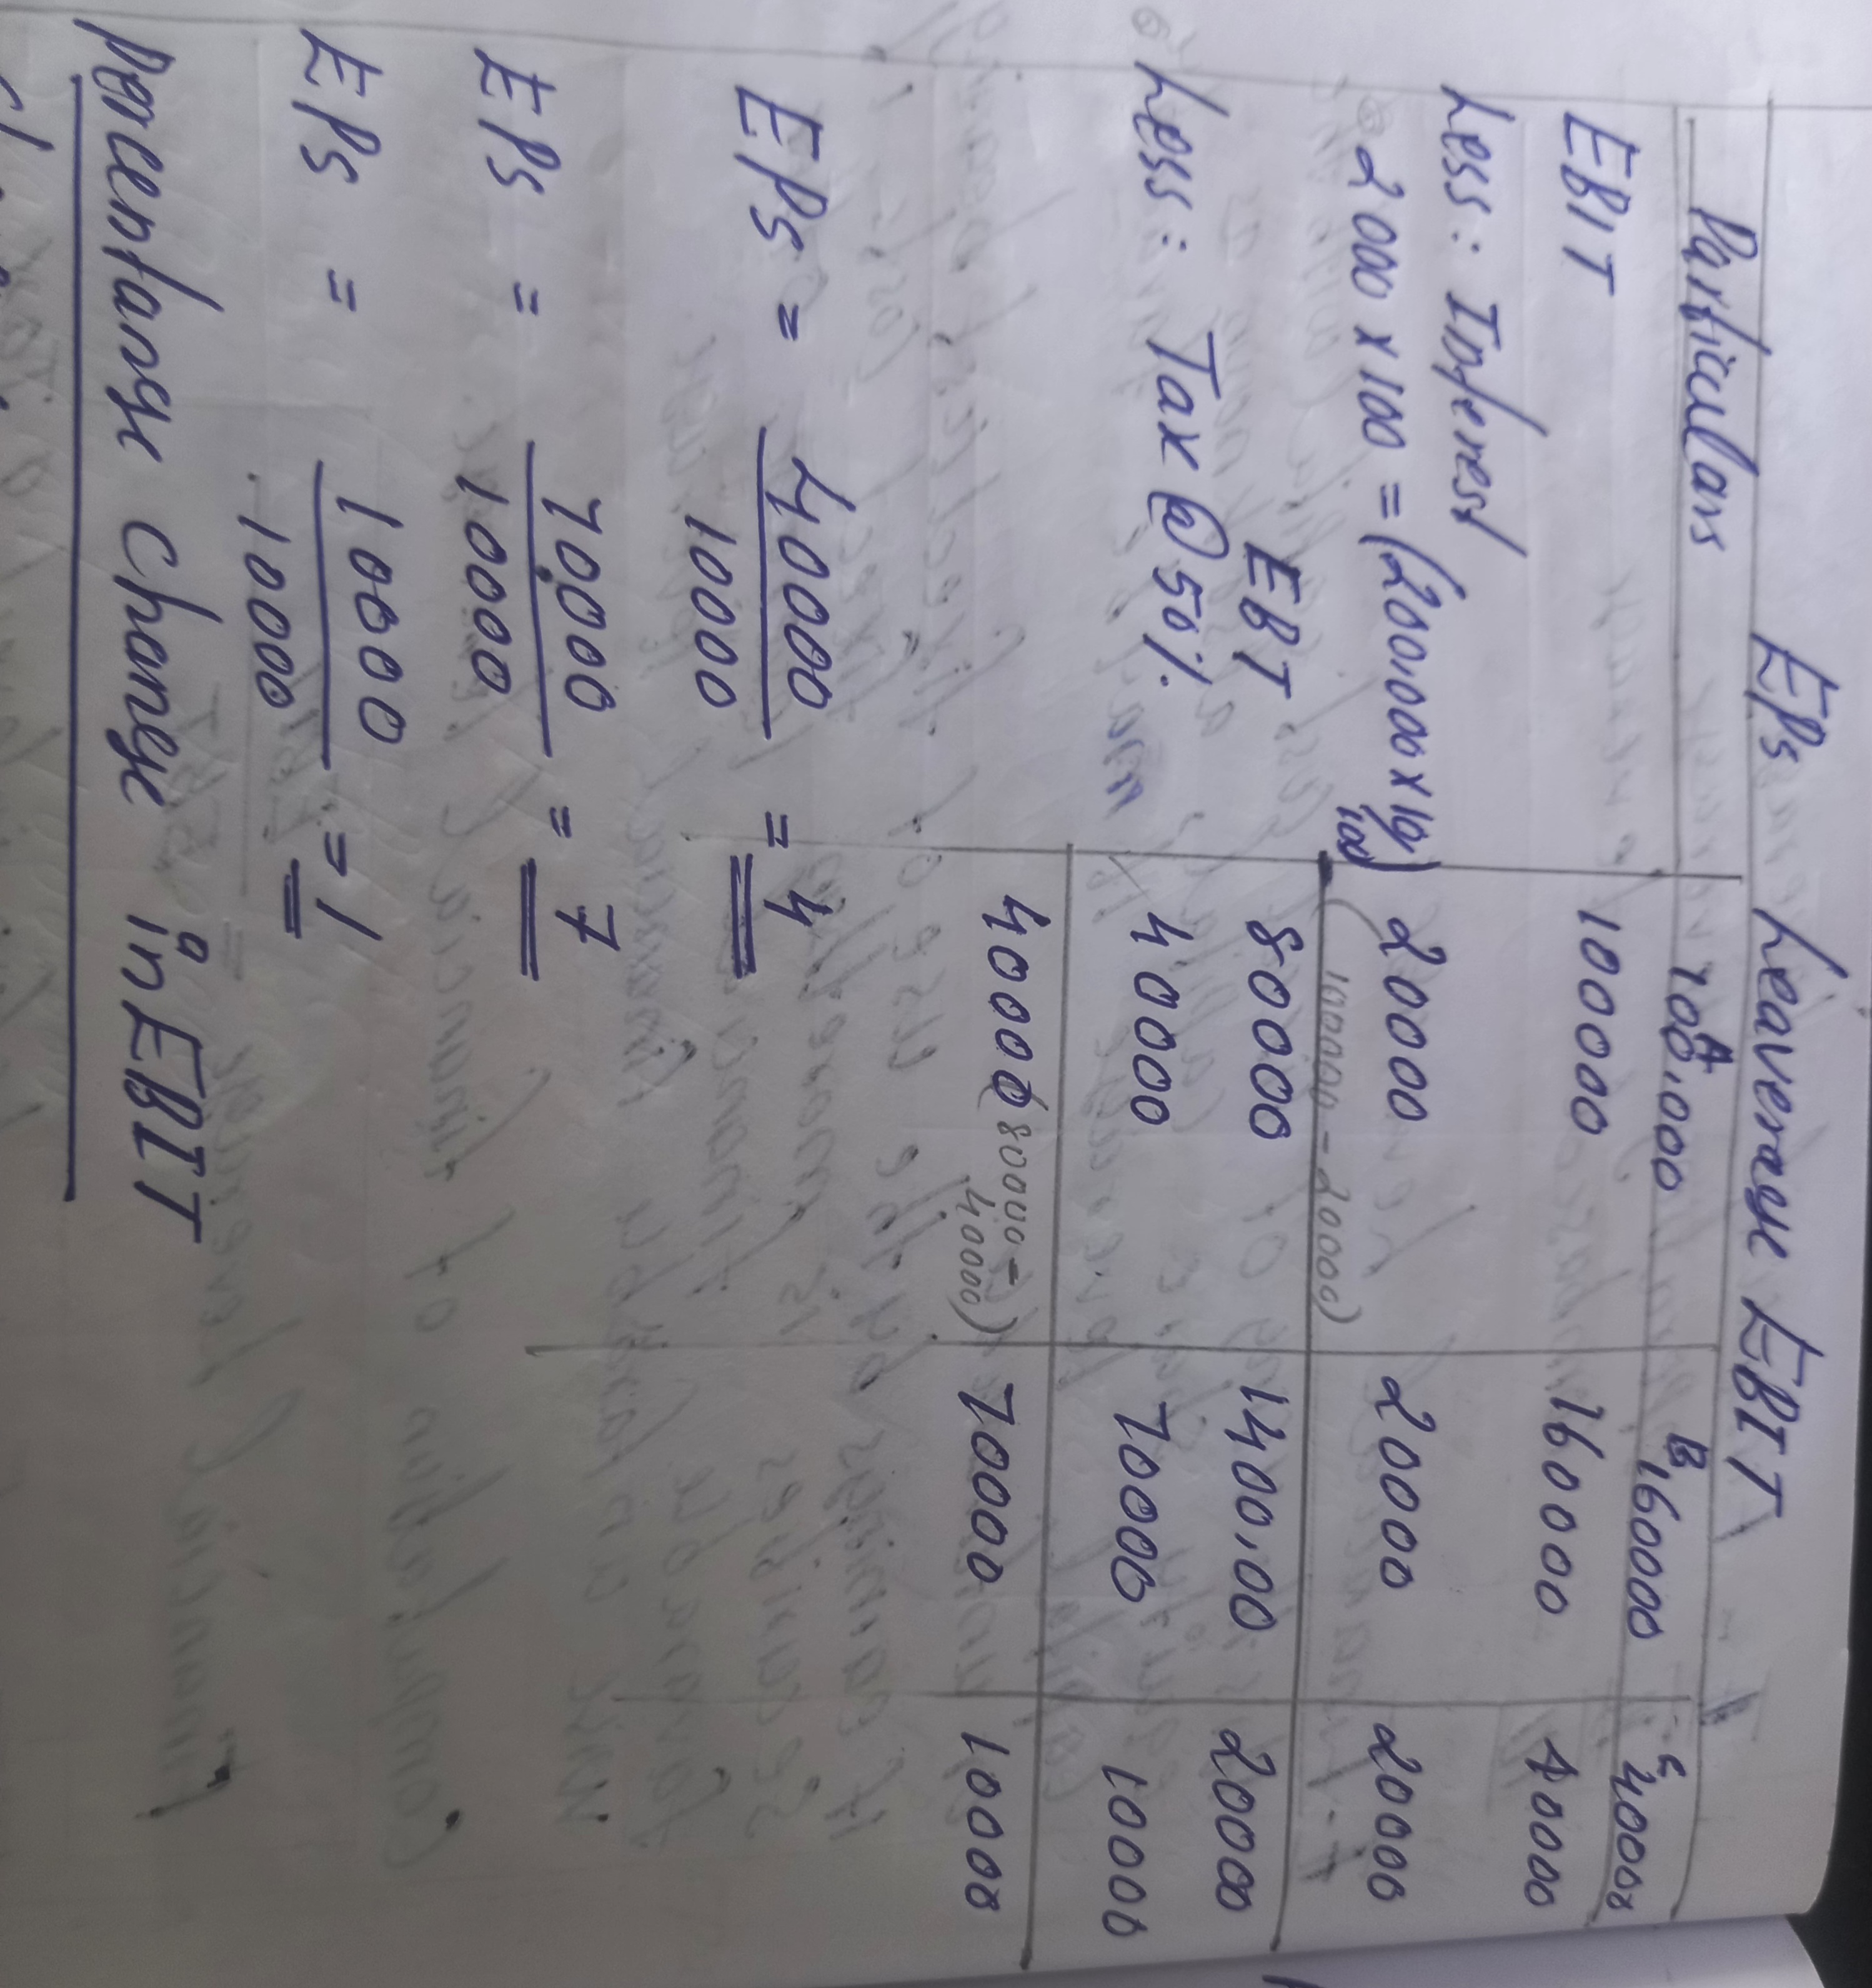 EPS Leaverage EBIT
Particulars A 100,000 B 160000 C 40000
EBIT 100000 160000 40000
Less: Interest
2000 x 100 = (200,000 x 10/100) 20000 20000 20000
(100000-20000)
EBT 80000 140000 20000
Less: Tax @ 50% 40000 70000 10000
40000 (80000 - 40000) 70000 10000
EPS = 40000/10000 = 4
EPS = 70000/10000 = 7
EPS = 10000/10000 = 1
Percentange change in EBIT